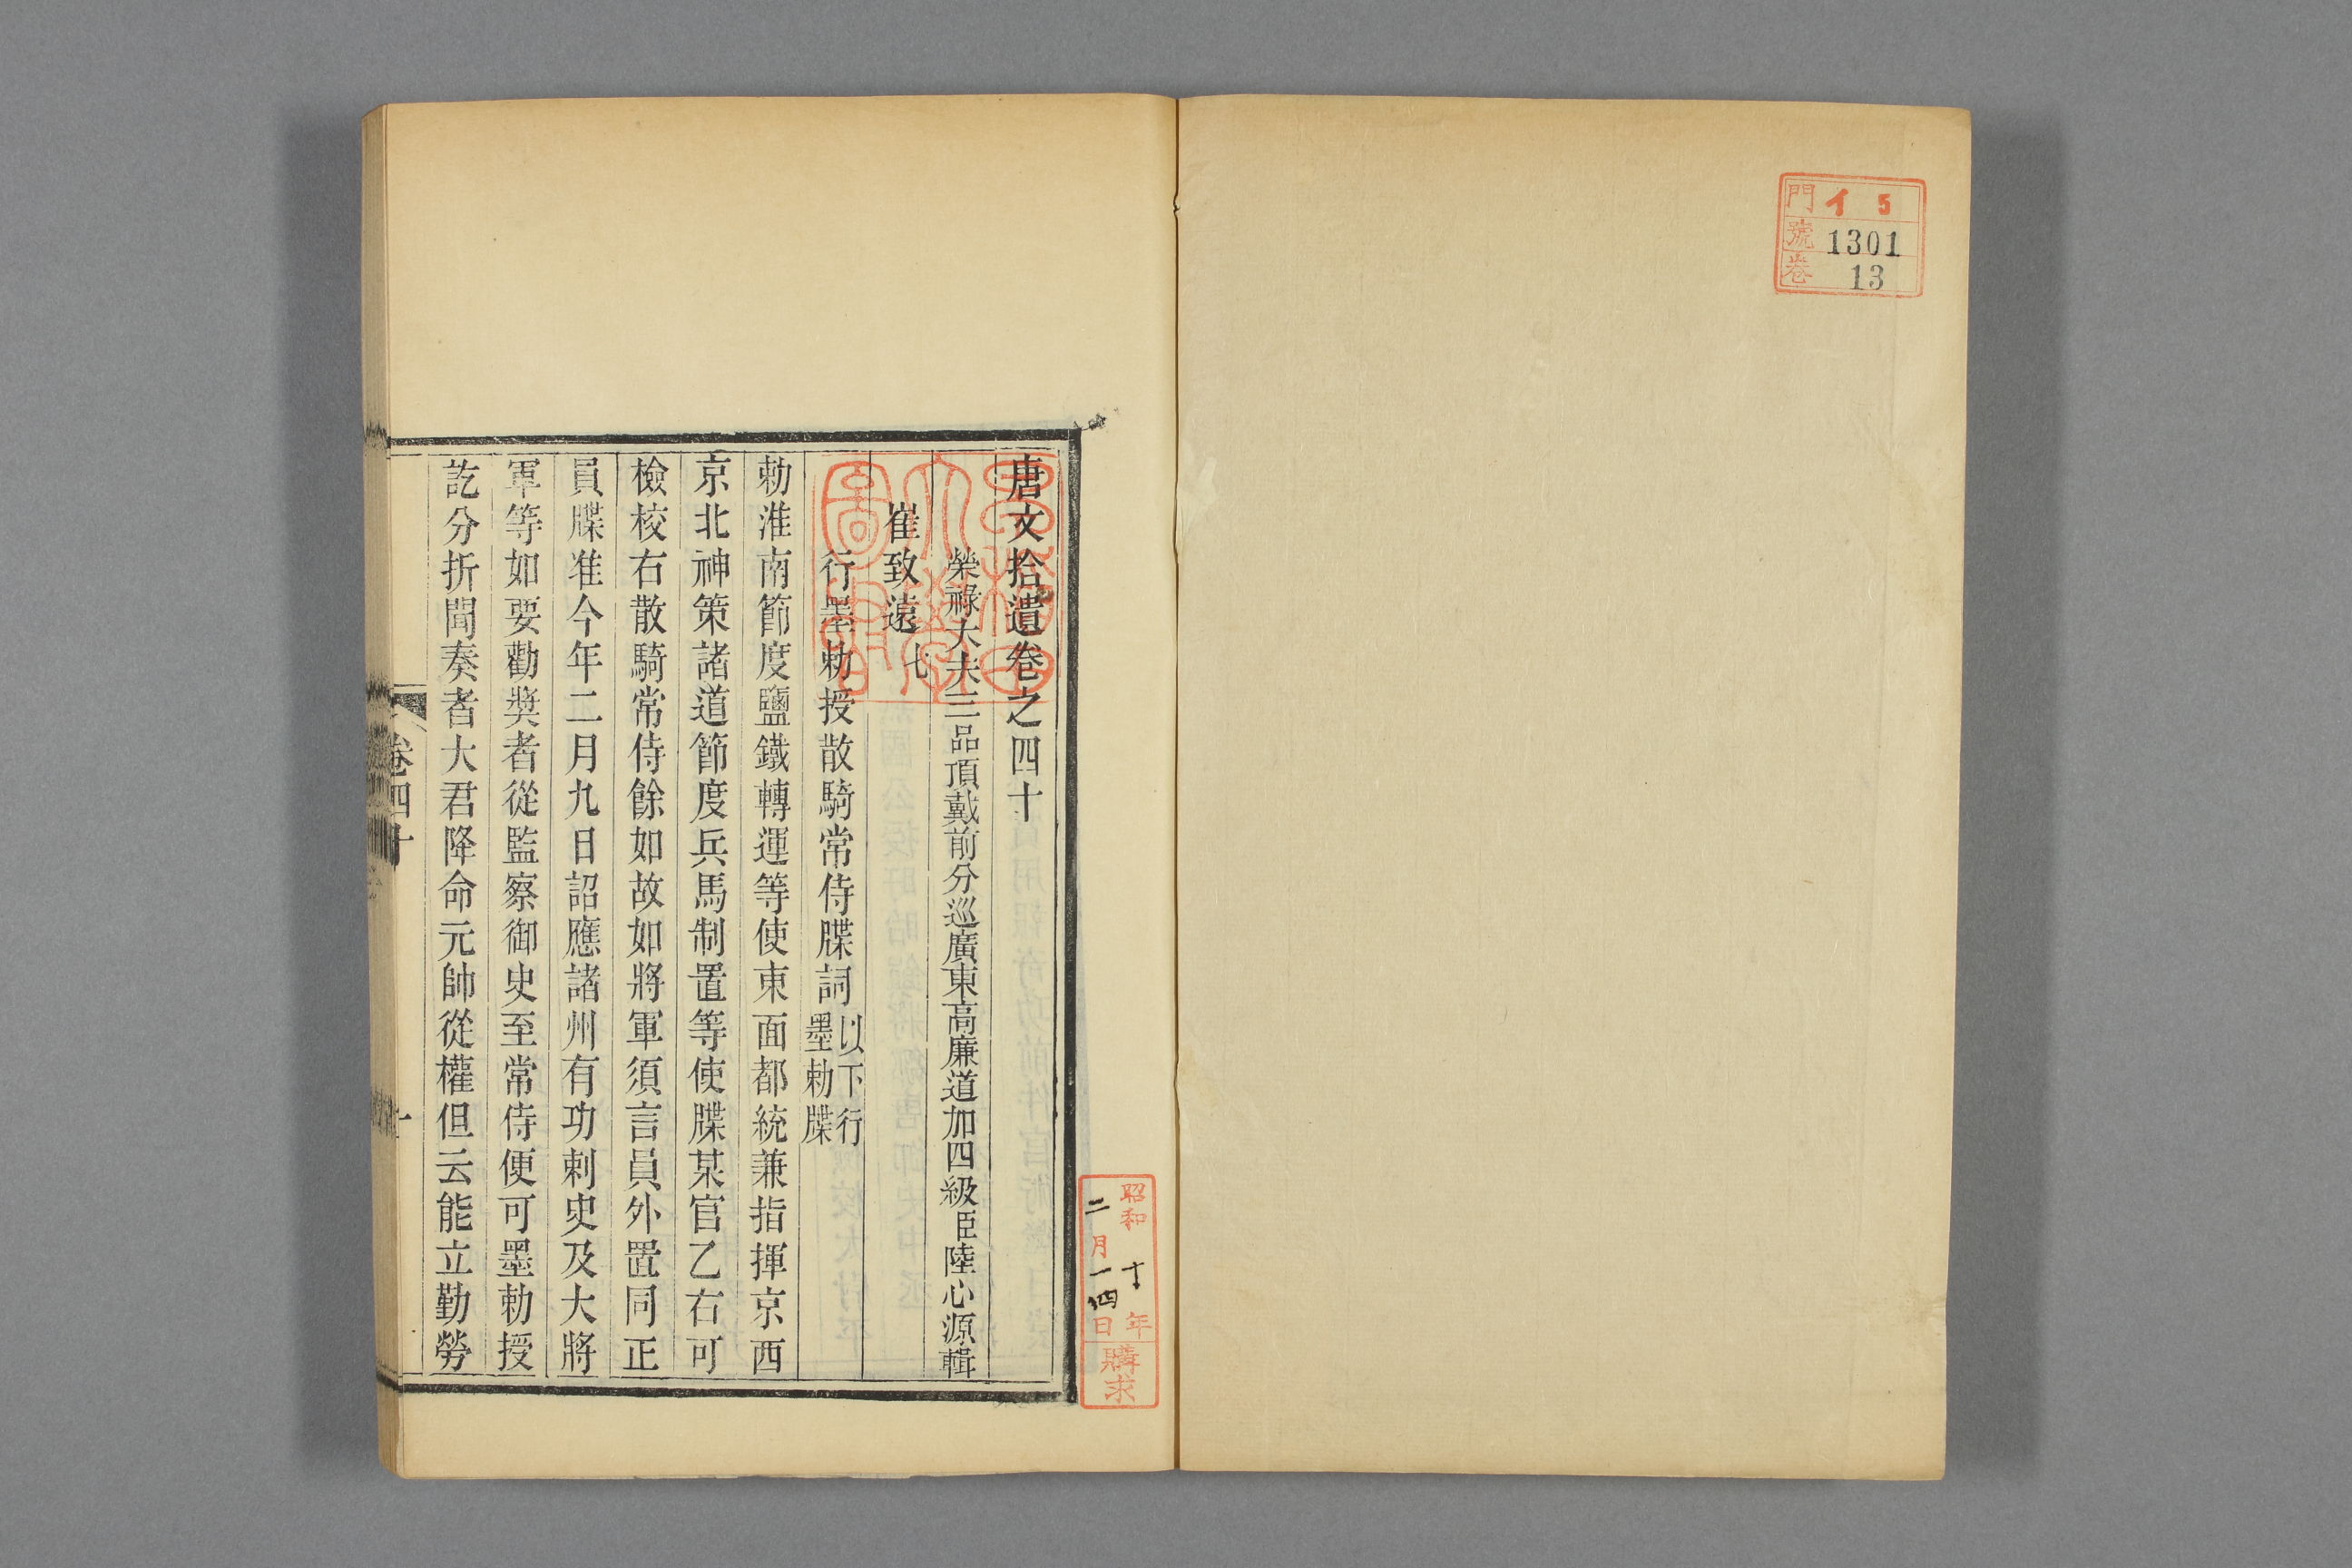 門 イ 5
號 1301
卷 13
唐文拾遺卷之四十
榮祿大夫三品頂戴前分巡廣東高廉道加四級臣陸心源輯
崔致遠七
行墨勅授散騎常侍牒詞以下行墨勅牒
勅淮南節度鹽鐵轉運等使東面都統兼指揮京西
京北神策諸道節度兵馬制置等使牒某官乙右可
檢校右散騎常侍餘如故如將軍須言員外置同正
員牒准今年二月九日詔應諸州有功刺史及大將
軍等如要勸奬者從監察御史至常侍便可墨勅授
訖分折聞奏者大君降命元帥從權但云能立勤勞
卷四十
一
昭和十年
二月一四日
購求